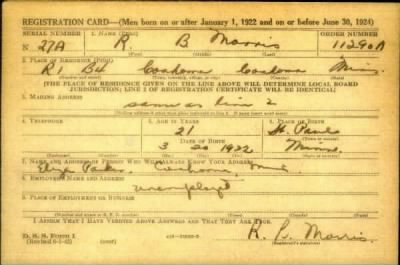 REGISTRATION CARD—(Men born on or after January 1, 1922 and on or before June 30, 1924)
SERIAL NUMBER 1. NAME (Print) ORDER NUMBER
N 27A R. B Morris 11290A
(First) (Middle) (Last)
2. PLACE OF RESIDENCE (Print)
R1 Coahoma Coahoma Miss.
[THE PLACE OF RESIDENCE GIVEN ON THE LINE ABOVE WILL DETERMINE LOCAL BOARD
JURISDICTION; LINE 2 OF REGISTRATION CERTIFICATE WILL BE IDENTICAL]
3. MAILING ADDRESS
same as line 2
4. TELEPHONE 5. AGE IN YEARS 6. PLACE OF BIRTH
21 St. Paul
DATE OF BIRTH
3 20 1922 Minn.
7. NAME AND ADDRESS OF PERSON WHO WILL ALWAYS KNOW YOUR ADDRESS
Coahoma, Miss
8. EMPLOYER'S NAME AND ADDRESS
unemployed
9. PLACE OF EMPLOYMENT OR BUSINESS
I AFFIRM THAT I HAVE VERIFIED ABOVE ANSWERS AND THAT THEY ARE TRUE.
D. S. S. Form 1
R. B. Morris
(Registrant's signature)